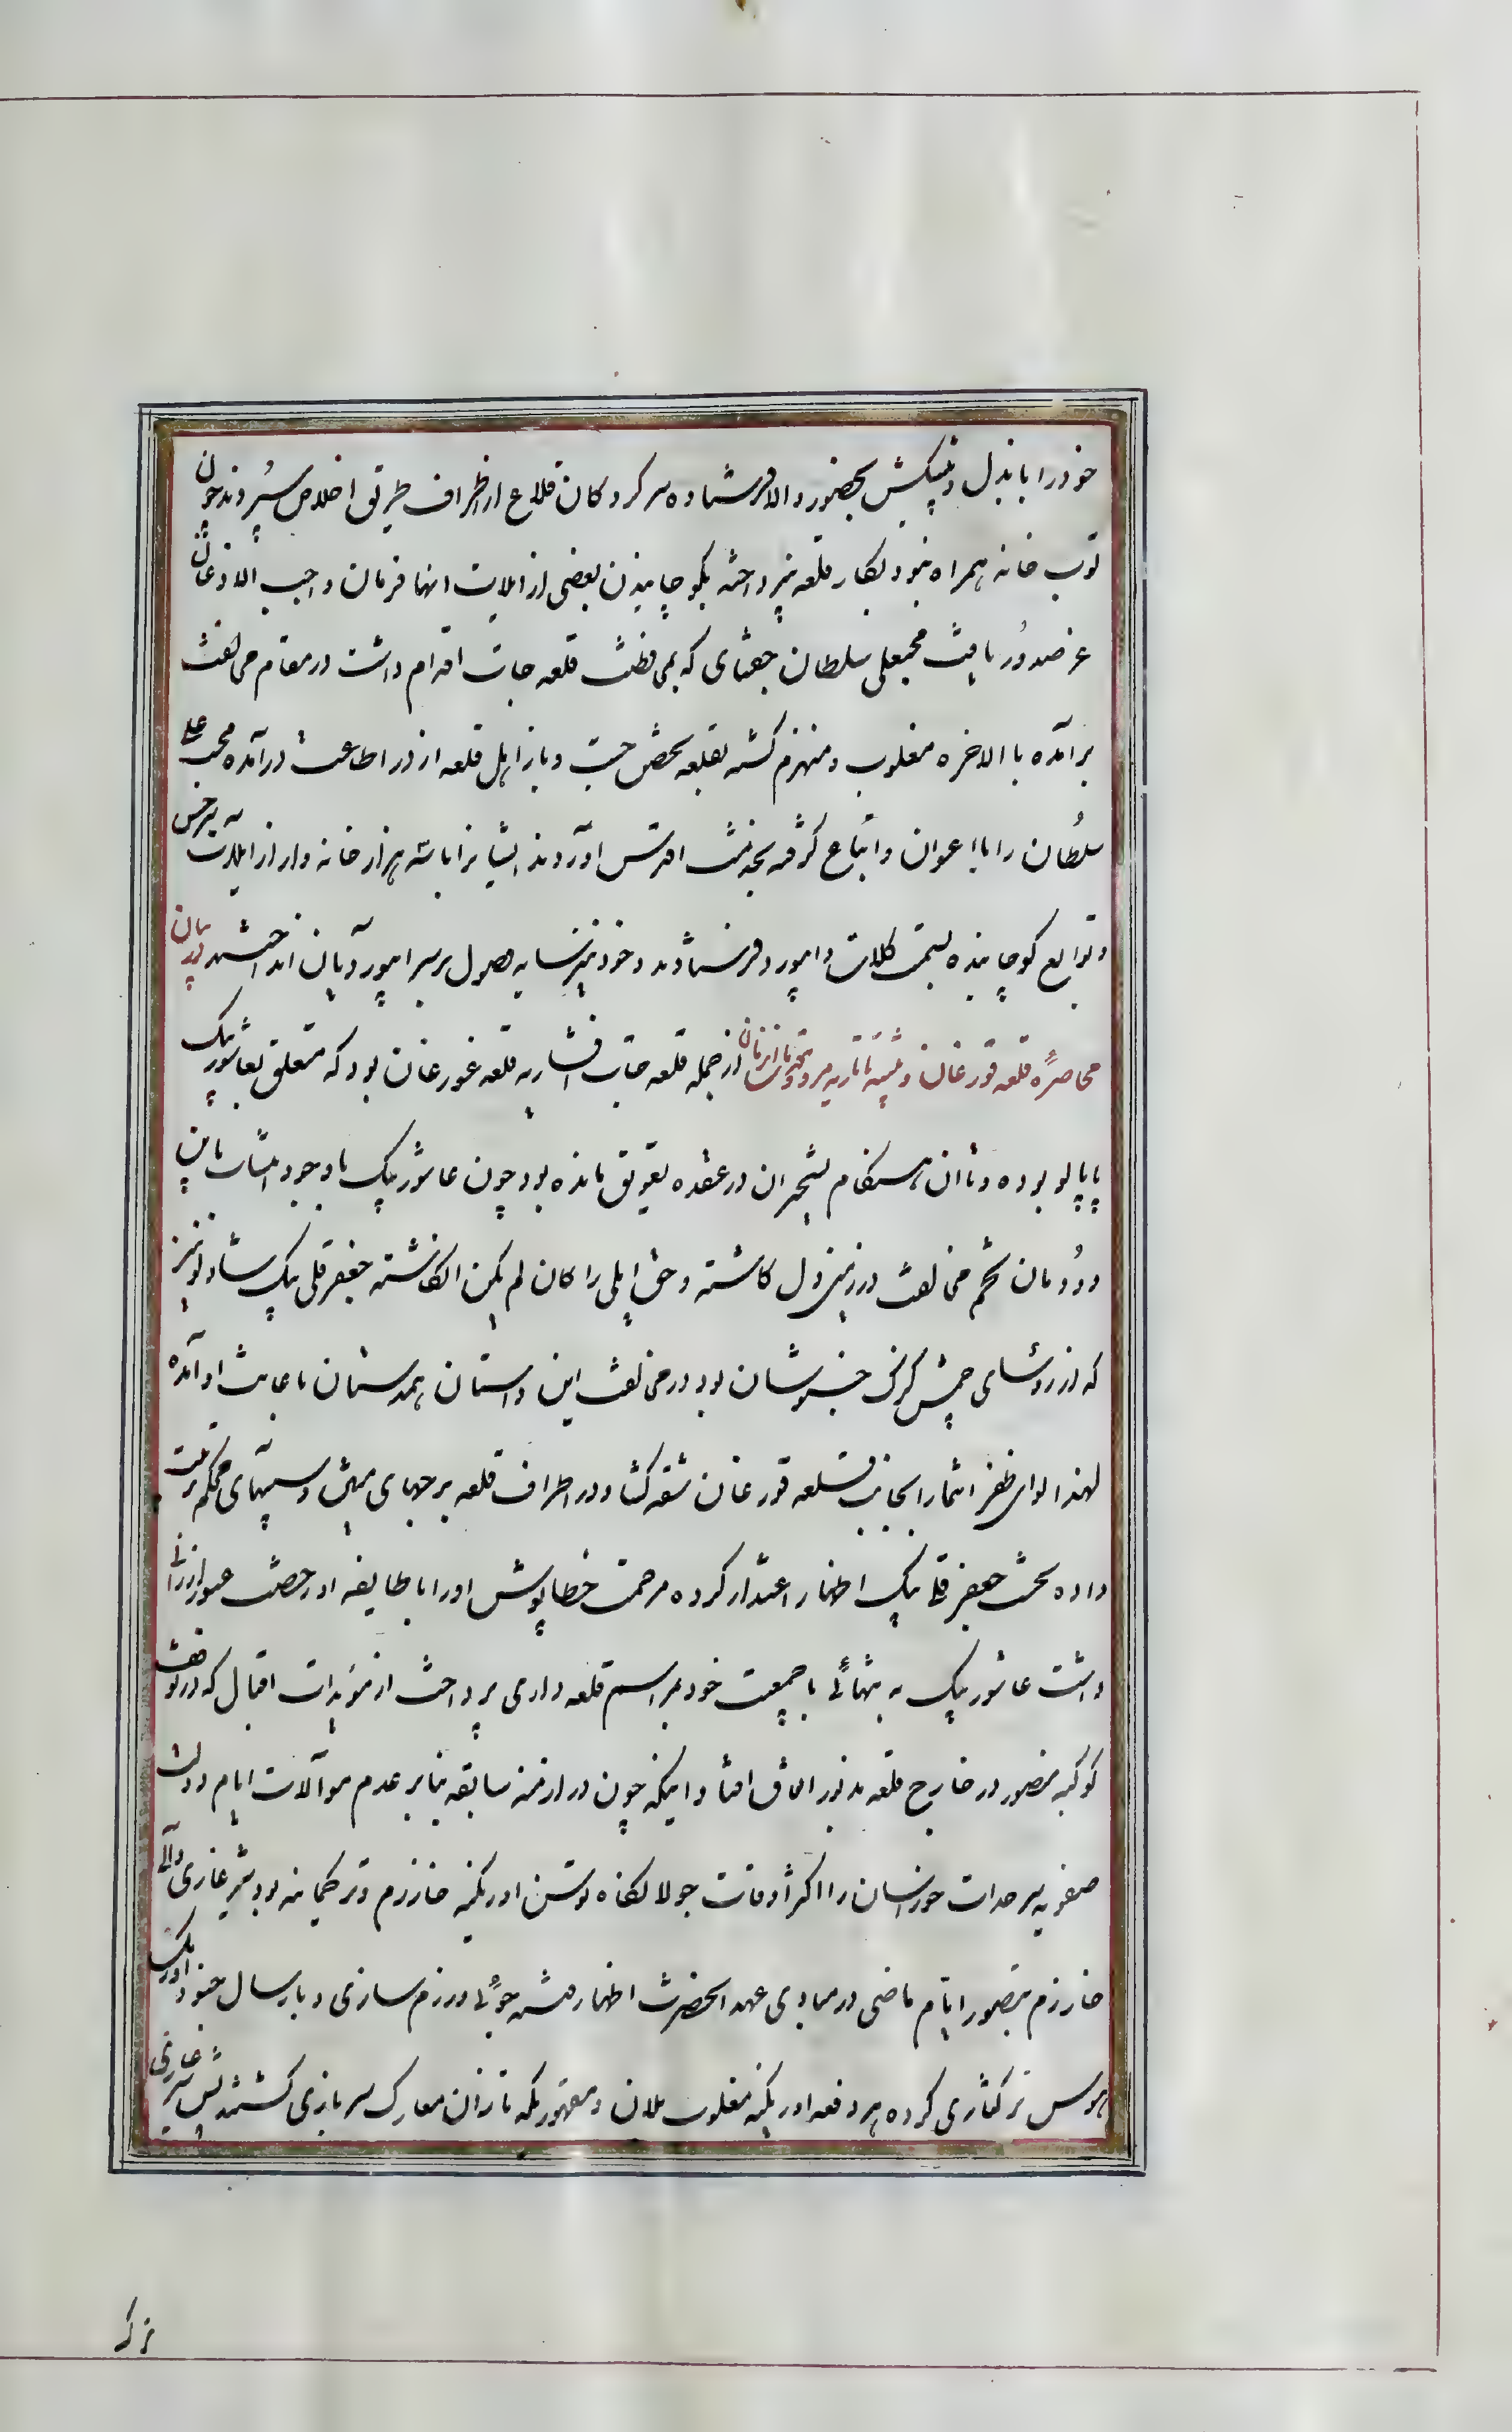 خود را با بذل و پیشکش بحضور والا فرستاده سرکردگان قلاع از اطراف طریق اخلاص سپردند چون
توپ خانه همراه نبود بکار قلعه نپرداخته بکوچانیدن بعضی از ایلات انها فرمان واجب الاذعان
عز صدور یافت محبعلی سلطان جغتای که بمحافظت قلعه جات اقدام داشت در مقام مخالفت
برآمده با الاخره مغلوب و منهزم کشته بقلعه تحصن جست و باز اهل قلعه از در اطاعت درآمده محب علی
سلطان را با اعوان و اتباع گرفته بخدمت اقدس اوردند ایشانرا با سه هزار خانه وار از ایلات سرخس
و توابع کوچانیده بسمت کلات و ابیورد فرستادند و خود نیز سایه وصول بر سر ابیوردیان انداختند بیان
محاصره قلعه قورغان و تنبیه تاتاریه مرو از جمله قلعه جات افشاریه قلعه غورغان بود که متعلق بعاشور بیک
پاپالو بوده و تا ان هنگام تسخیر ان در عقده تعویق مانده بود چون عاشور بیک با وجود انتساب باین
دودمان تخم مخالفت در زمین دل کاشته و حق ایلی را کان لم یکن انگاشته جعفر قلی بیک شادلو نیز
که از رؤسای چمش کزک خبوشان بود در مخالفت این داستان همدستان باعانت او آمده
لهذا لوای ظفر انتما را بجانب قلعه قورغان شقه کشا و در اطراف قلعه برجهای متین و سیبهای محکم ترتیب
داده نخست جعفر قلی بیک اظهار اعتذار کرده مرحمت خطاپوش او را با طایفه او رخصت عبور ارزانی
داشت عاشور بیک به تنهائی با جمعیت خود بمراسم قلعه داری پرداخت از مؤیدات اقبال که در توقف
کوکبه منصور در خارج قلعه مذکور اتفاق افتاد اینکه چون در ازمنه سابقه بنابر عدم موآلات ایام دولت
صفویه سرحدات خراسان را اکثر اوقات جولانگاه توسن اوزبکیه خارزم و ترکمانیه بود شیر غازی والی
خارزم بتصور ایام ماضی در مبادی عهد انحضرت اظهار فتنه جوئی و رزم سازی و بارسال جنود اوزبک
هوس ترکتازی کرده هر دفعه اوزبکیه مغلوب یلان و مقهور یکه تازان معارک سربازی کشتند پس شیر غازی
ترک